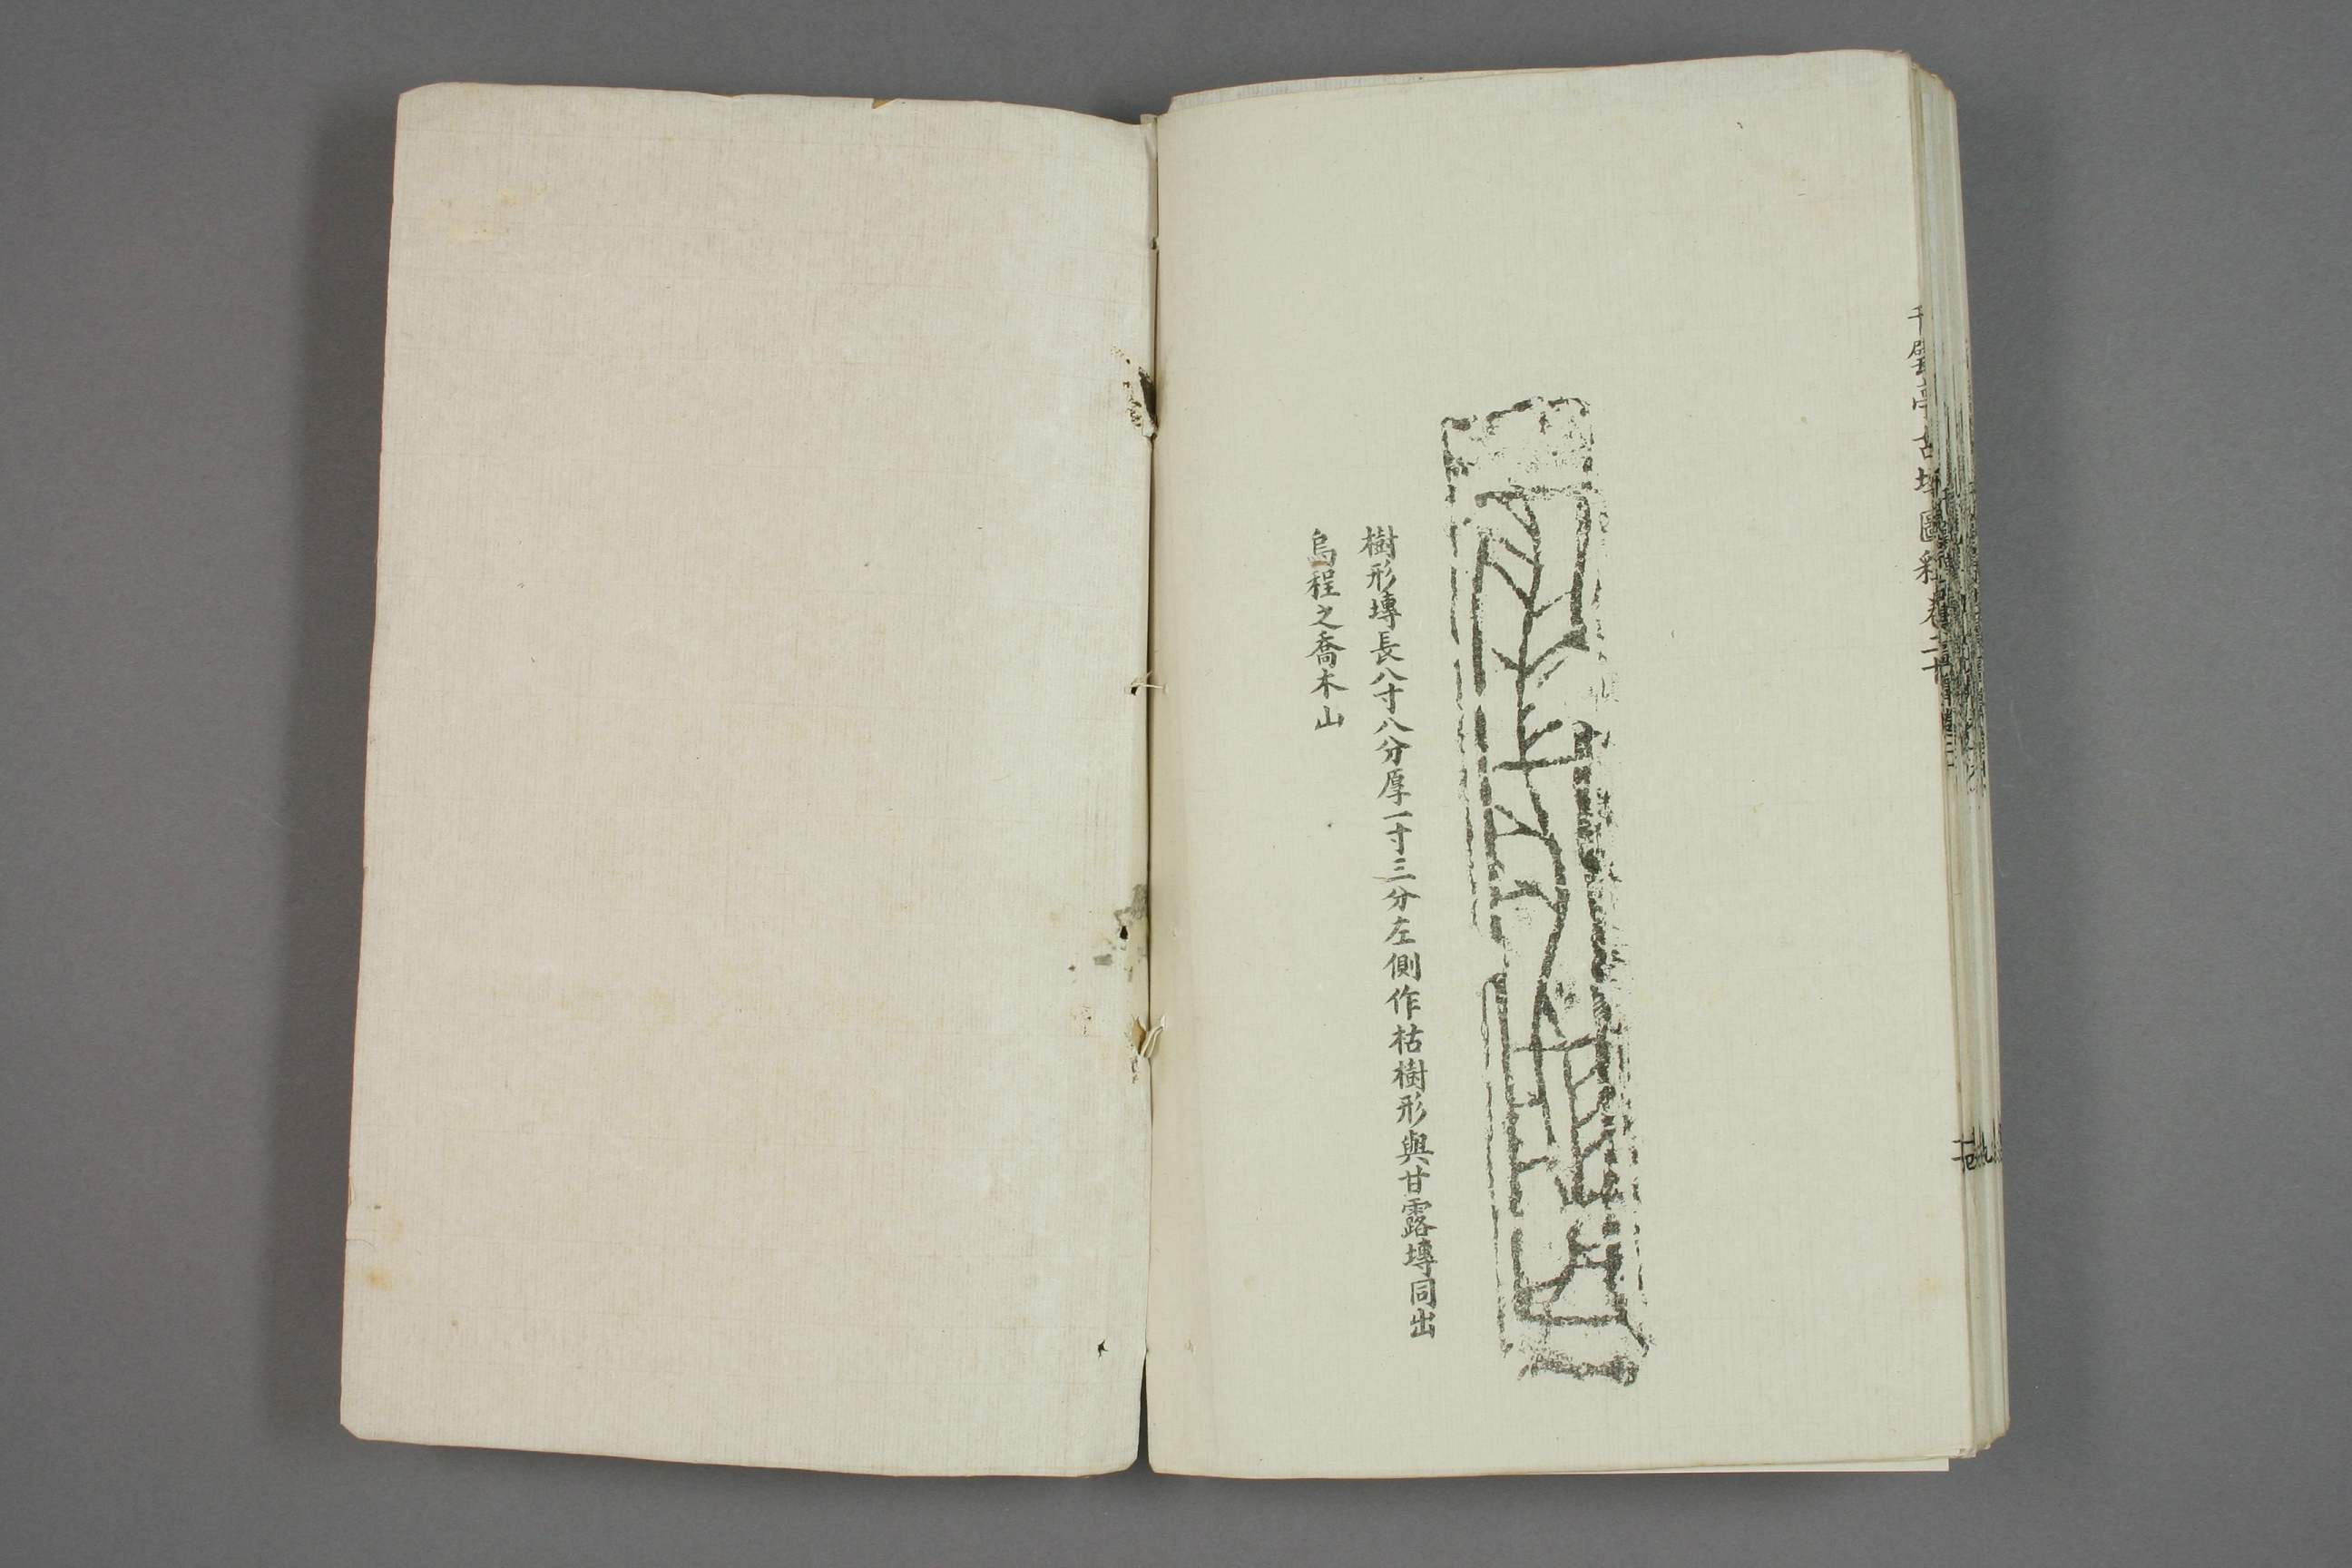 千甓亭古塼圖釋卷二十
樹形塼長八寸八分厚一寸三分左側作枯樹形與甘露塼同出
烏程之喬木山